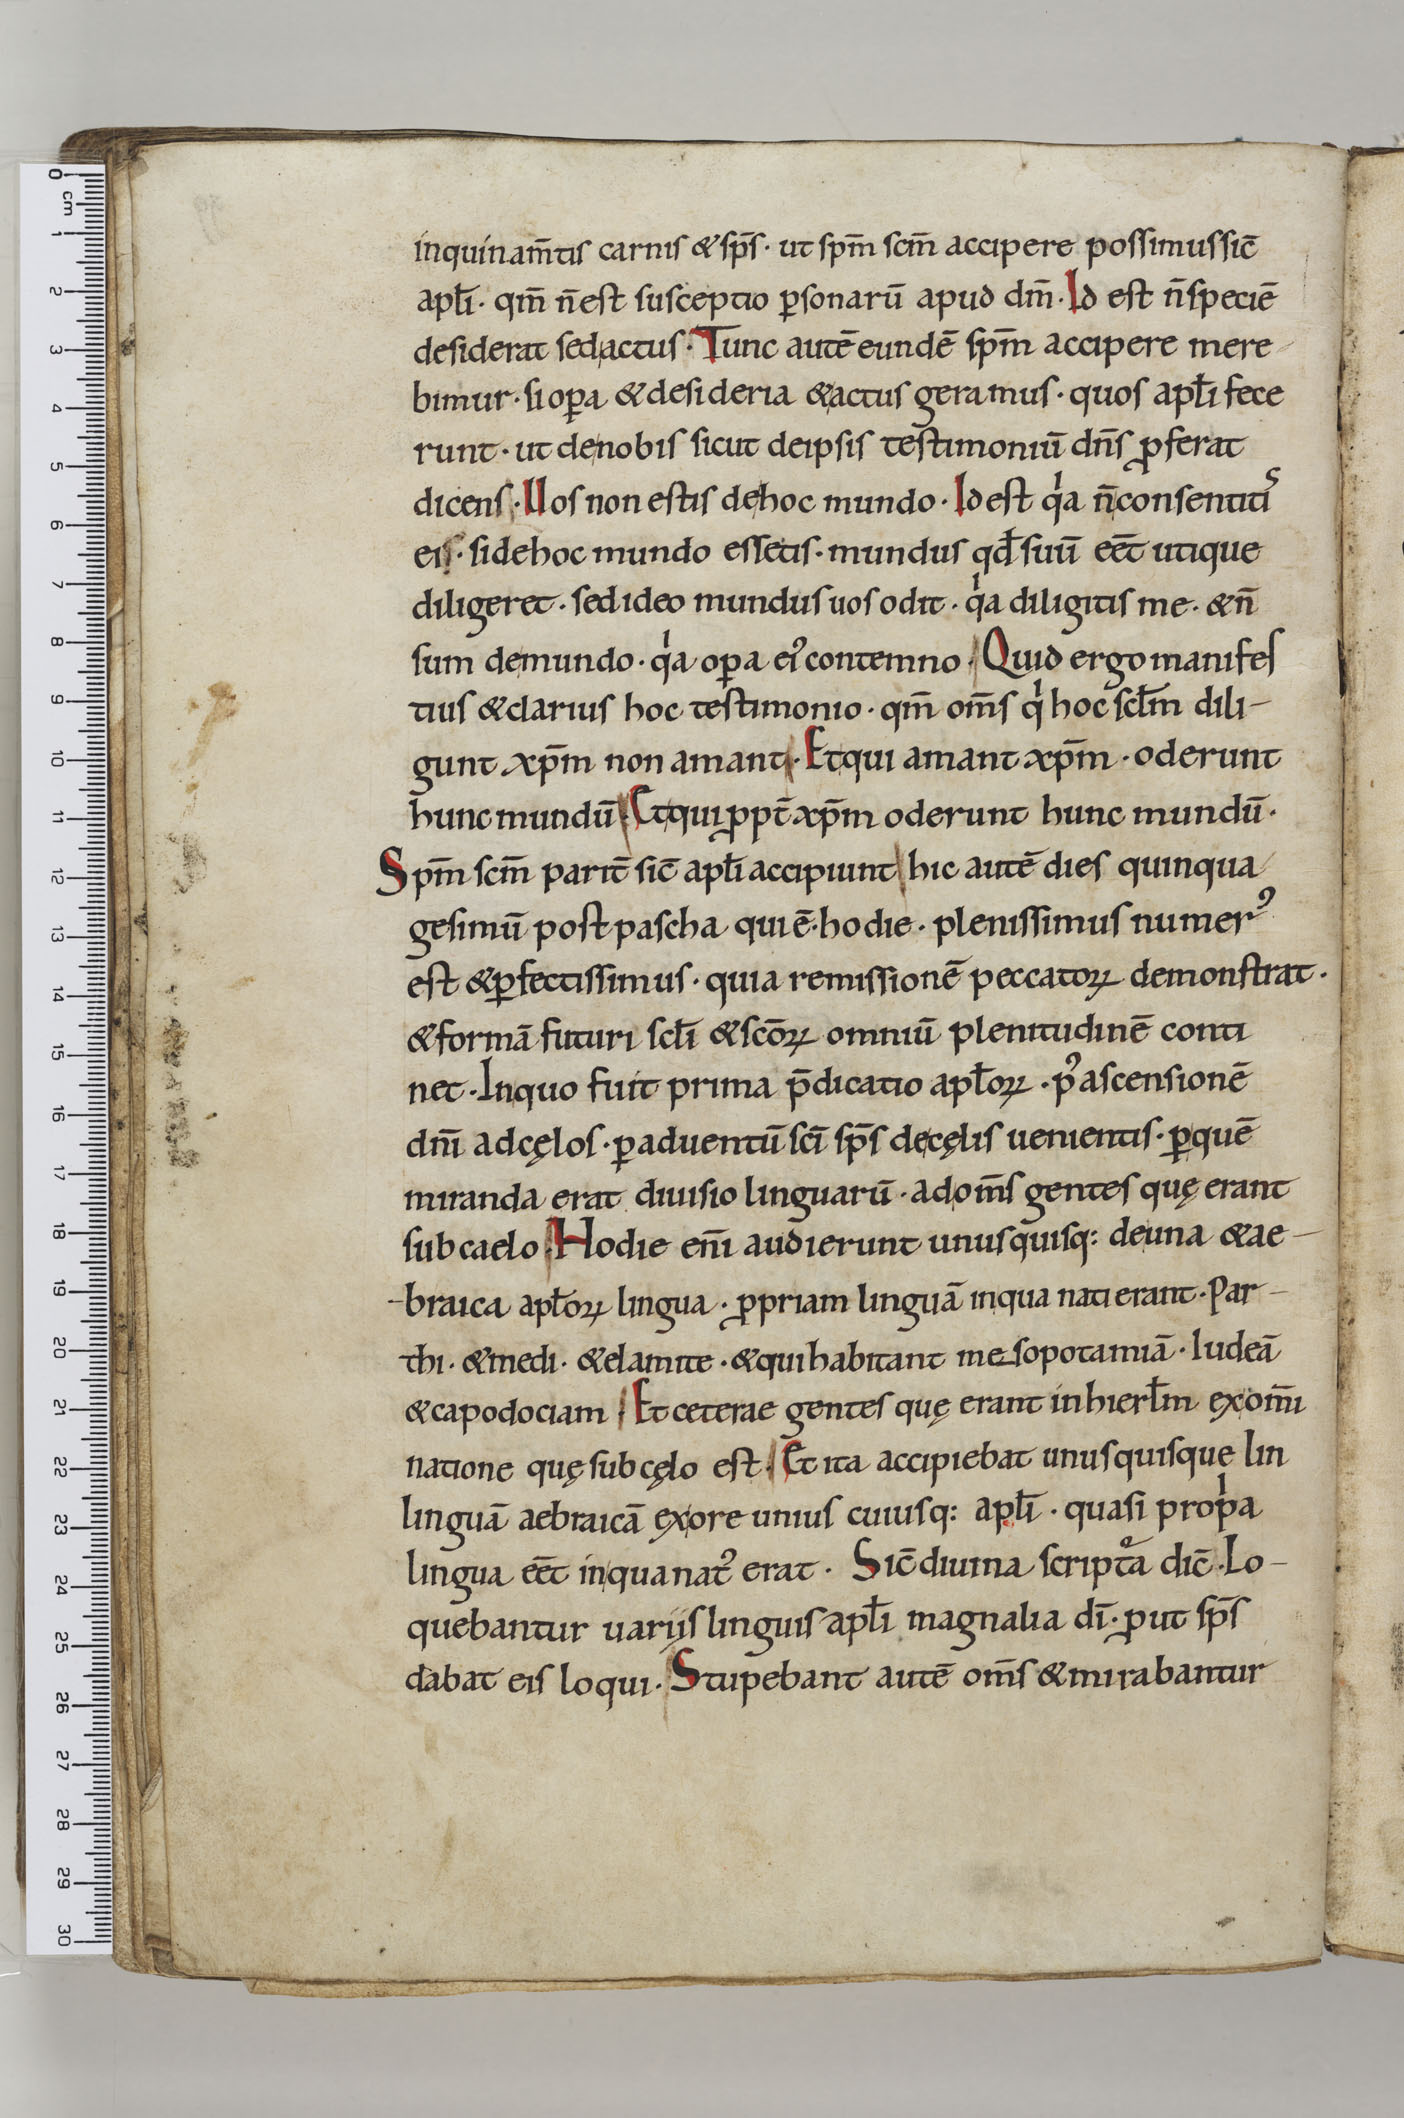 inquinam̄tis carnis & sp̄s · ut sp̄m scm̄ accipere possimus sic̄
apłi · qm̄ n̄ est susceptio ꝑsonarū apud dm̄ · Id est n̄ speciē
desiderat sed actus · Tunc autē eundē sp̄m accipere mere
bimur · si oꝑa & desideria & actus geramus · quos apłi fece
runt · ut de nobis sicut de ipsis testimoniū dn̄s ꝓferat
dicens · Uos non estis de hoc mundo · Id est qͥa n̄ consentitis
eis · si de hoc mundo essetis · mundus qđ suū eēt utique
diligeret · sed ideo mundus uos odit · qͥa diligitis me · & n̄
sum de mundo · qͥa oꝑa eiꝰ contemno · Quid ergo manifes
tius & clarius hoc testimonio · qm̄ om̄s qͥ hoc scłm dili-
gunt xp̄m non amant · Et qui amant xp̄m · oderunt
hunc mundū · Et qui ꝓpt̄ xp̄m oderunt hunc mundū ·
Sp̄m scm̄ parit̄ sic̄ apłi accipiunt hic autē dies quinqua
gesimū post pascha qui ē · hodie · plenissimus numerꝰ
est & ꝑfectissimus · quia remissionē peccatoꝝ demonstrat ·
& formā futuri scłi & scōꝝ omniū plenitudinē conti
net · In quo fuit prima p̄dicatio apłoꝝ · pꝰ ascensionē
dn̄i ad cęlos · ꝑ aduentū sc̄i sp̄s de cęlis uenientis · ꝑ quē
miranda erat diuisio linguarū · ad om̄s gentes quę erant
sub caelo · Hodie eni̅ audierunt unusquisq: de una & ae-
-braica apłoꝝ lingua · ꝓpriam linguā in qua nati erant · Par-
thi · & medi · & elamite · & qui habitant mesopotamiā · Iudeā
& capodociam · Et ceterae gentes quę erant in hierłm ex om̄i
natione quę sub cęlo est · Et ita accipiebat unusquisque lin
linguā aebraicā ex ore unius cuiusq: apłi · quasi propͥa
lingua eēt in qua natꝰ erat · Sic̄ diuina scriptͣa dic̄ · Lo-
quebantur uarijs linguis apłi magnalia dī · ꝓut sp̄s
dabat eis loqui · Stupebant autē om̄s & mirabantur